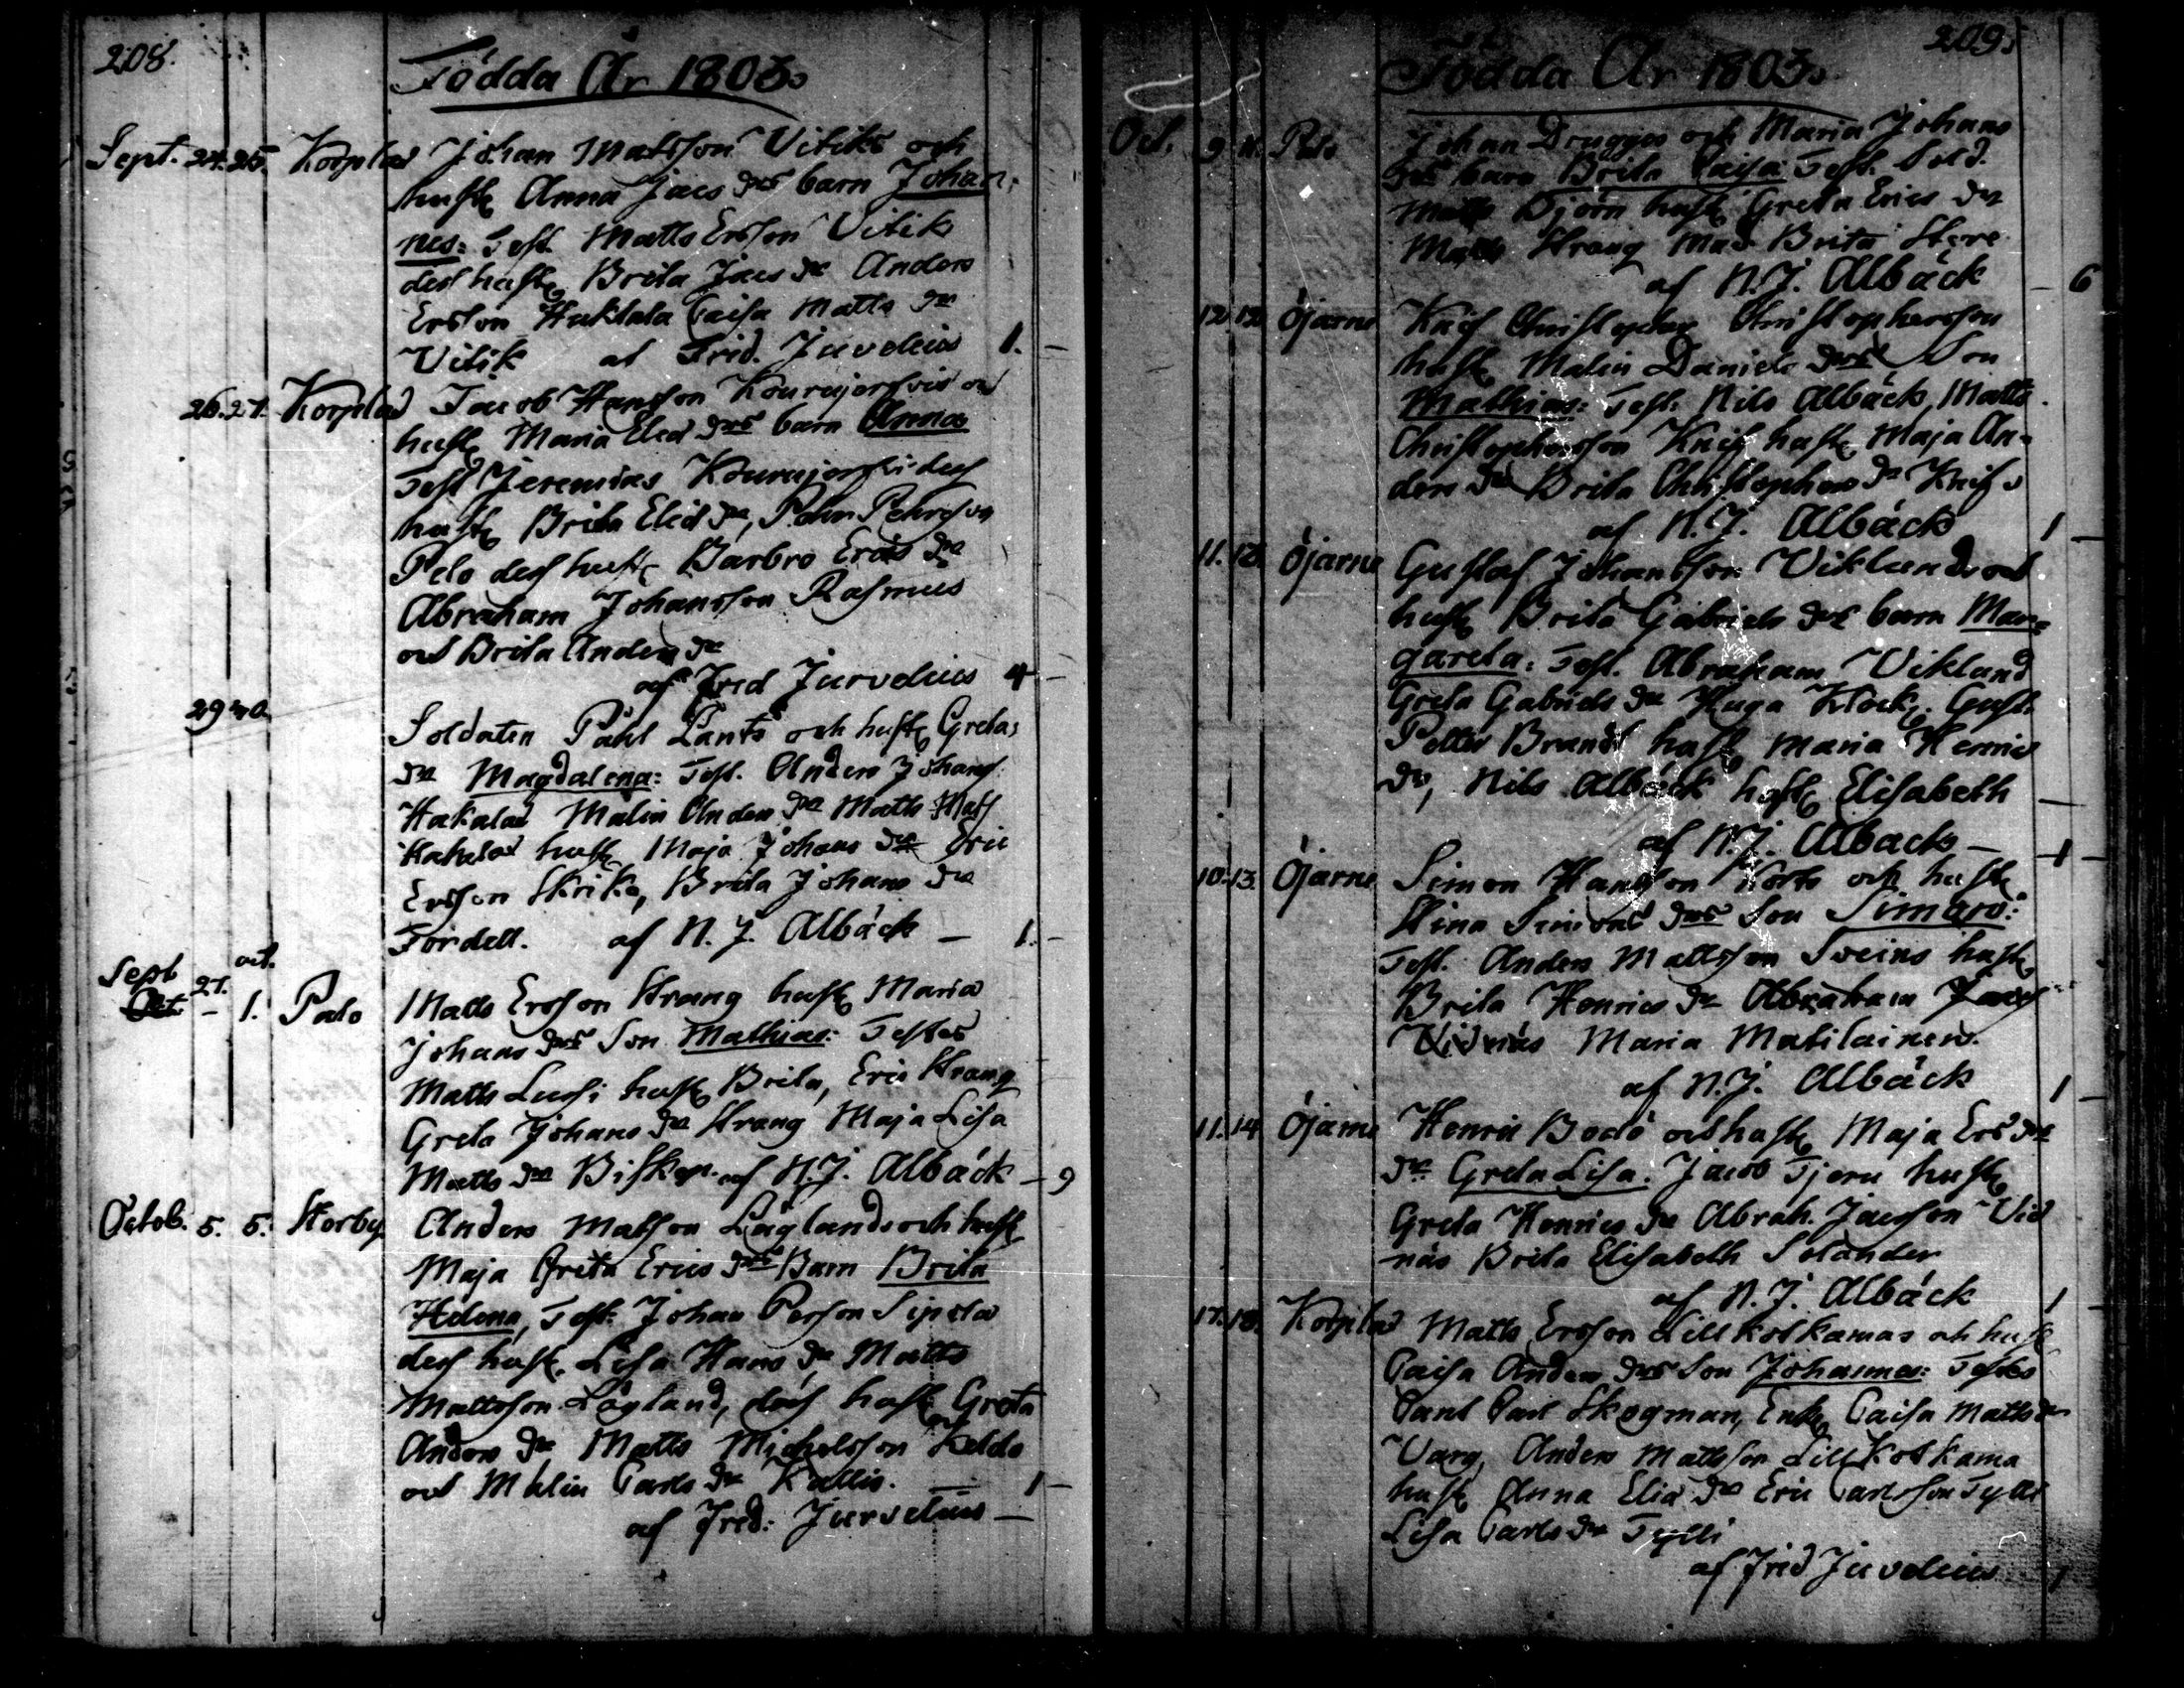 208.
Födda År 1803.
Sept. 24. 25. Korplax Johan Matsson Vitiks och
hust Anna Jacs drs barn Johan-
nes: Test. Matts Ersson Vitik
dess hust Brita Jacs dr Anders
Ersson Huktala Caisa Matts dr
Vitik af Fred. Juvelius 1. —
26. 27. Korplax Jacob Hansson Kourujerfvis och
hust Maria Elias drs barn Anna
Test Jeremias Kourujerfvi dess
hust Brita Elias dr, Pehr Pehrsson
Pelo dess hust Barbro Erics dr
Abraham Johansson Rasmus
och Brita Anders dr
af Fred Jurvelius 4 —
29 30.
Soldaten Påhl Lants och hust Greta:
dr Magdalena: Test. Anders Johans.
Hakalax Malin Anders dr Matts Mats
Kakalax hust Maja Johans dr Eric
Ersson Skrika, Brita Johans dr
Fordell. af N. J. Albäck — 1. —
Sept 27. oct.
Oct. — 1. Palo Matts Ersson Strang hust Maria
Johans drs Son Mathias: Testes
Matts Lussi hust Brita, Eric Strang
Greta Johans dr Strang Maja Lisa
Matts dr Biskop. af N. J. Albäck — 9
Octob. 5. 5. Storby Anders Matsson Låglands och hust
Maja Greta Erics drs Barn Brita
Helena, Test: Johan Persson Sipola
dess hust. Lisa Hans dr Matts
Mattsson Lågland, dess hust Greta
Anders dr Matts Michelsson Keldo
och Malin Carls dr Kallis. — 1 —
af Fred: Jurvelius —
209.
Födda År 1803.
Oct. 9 11. Palo Johan Druggas och Maria Johans
drs barn Brita Caisa Test. Sold.
Matts Björn hust Greta Erics dr
Matts Strang Mad Brita Stare
af N. J. Albäck — 6
12 12 Öjarne Knif Christopher Christophersson
hust Malin Daniels drs Son
Mathias: Test: Nils Albäck, Matts
Christophersson Knif hust Maja An-
ders dr Brita Christophers dr Knif
af N. J. Albäck 1 —
11. 13. Öjarne Gustaf Johansson Viklunds och
hust Brita Gabriels drs barn Mar-
gareta: Test. Abraham Viklund
Greta Gabriels dr Klock. Gust.
Petter Brand hust Maria Henrics
dr, Nils Albäck hust Elisabeth
af N. J. Albäck — 1 —
10. 13. Öjarne Simon Hansson Korts och hust
Stina Simons drs Son Simon:
Test. Anders Mattsson Sveins hust
Brita Henrics dr Abraham Jacs
Vidnäs Maria Matilainen.
af N. J. Albäck 1 —
11. 14 Öjarne Henric Bodö och hust Maja Ers drs
dr Greta Lisa. Jacob Tjeru hust
Greta Henrics dr Abrah. Jacsson Vid
näs Brita Elisabeth Solander
af N. J. Albäck 1 —
17. 18. Korplax Matts Ersson Lillkoskamas och hust
Caisa Anders drs Son Johannes: Testes
Carl Skogman, Enk Caisa Matts dr
Varg, Anders Mattsson Lillkoskama
hust Anna Elia dr Eric Carlsson Tylli
Lisa Carls dr Tylli
af Fred Juvelius 1